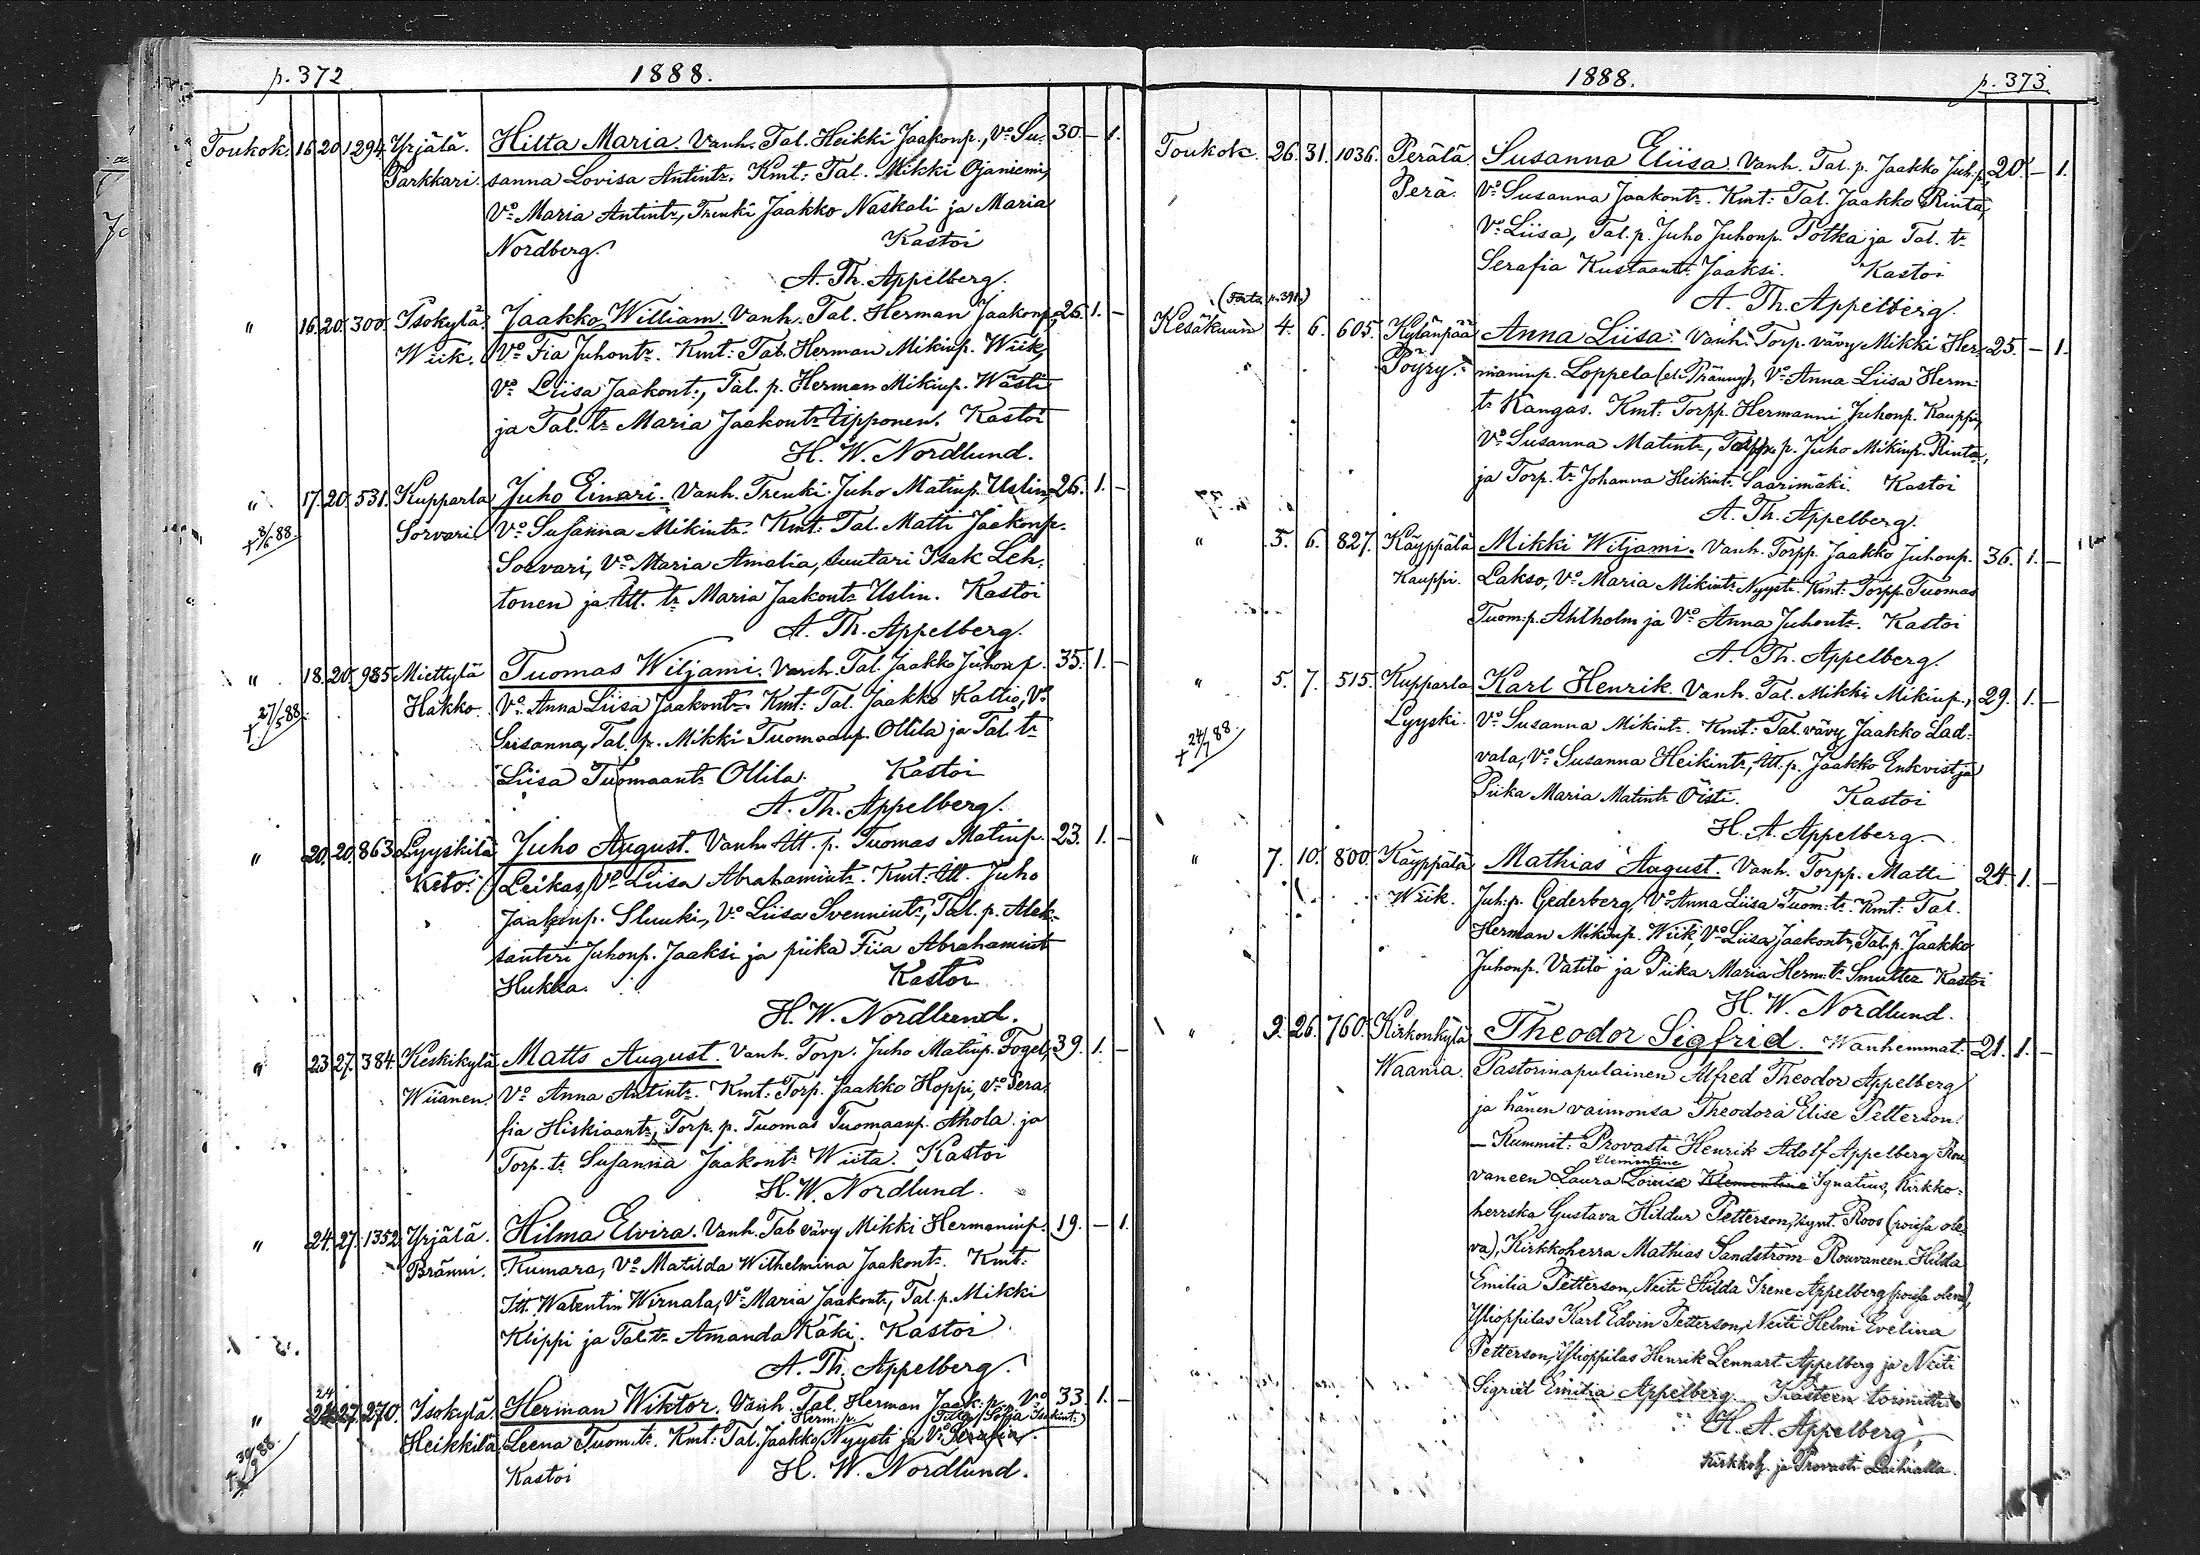 p. 372 1888.
Toukok. 16. 20. 1294. Yrjälä. Hilta Maria. Vanh. Tal. Heikki Jaakonp., Vo Su- 30. – 1.
Parkkari. sanna Lovisa Antintr. Kmt: Tal. Mikki Ojaniemi,
Vo Maria Antintr, Trenki Jaakko Naskali ja Maria
Nordberg. Kastoi
A. Th. Appelberg.
" 16. 20. 300. Isokylä. Jaakko William. Vanh. Tal. Herman Jaakonp, 26. 1. –
Wiik. Vo Fia Juhontr. Kmt: Tal. Herman Mikinp. Wiik,
Vo Liisa Jaakont., Tal. p. Herman Mikinp. Wästi
ja Tal. tr Maria Jaakontr Lipponen. Kastoi
H. W. Nordlund.
" 17. 20. 531. Kupparla Juho Einari. Vanh. Trenki Juho Matinp. Uslin, 26. 1. –
† 8/6 88. Sorvari Vo Susanna Mikintr. Kmt: Tal. Matti Jaakonp.
Sorvari, Vo Maria Amalia, suutari Isak Leh-
tonen ja Itt. tr Maria Jaakontr Uslin. Kastoi
A. Th. Appelberg.
" 18. 20. 985. Miettylä Tuomas Wiljami. Vanh. Tal. Jaakko Juhonp. 35. 1. –
† 27/5 88. Hakko. Vo Anna Liisa Jaakontr. Kmt: Tal. Jaakko Kallio, Vo
Susanna, Tal. p. Mikki Tuomaanp. Ollila ja Tal. tr
Liisa Tuomaantr Ollila. Kastoi
A. Th. Appelberg.
" 20. 20. 863. Lyyskilä Juho August. Vanh. Itt. p. Tuomas Matinp. 23. 1. –
Keto. Leikas, Vo Liisa Abrahamintr. Kmt: Itt. Juho
Jaakonp. Sluuki, Vo Liisa Svennintr, Tal. p. Alek-
santeri Juhonp. Jaaksi ja piika Fiia Abrahamint
Hukka. Kastoi
H. W. Nordlund.
" 23. 27. 384. Keskikylä Matts August. Vanh. Torp. Juho Matinp. Fogel, 39. 1. –
Wiianen. Vo Anna Antintr. Kmt: Torp. Jaakko Hoppi, Vo Sera-
fia Hiskiaantr, Torp. p. Tuomas Tuomaanp. Ahola ja
Torp. tr Susanna Jaakontr Wiita. Kastoi
H. W. Nordlund.
" 24. 27. 1352. Yrjälä. Hilma Elvira. Vanh. Tal. vävy Mikki Hermaninp. 19. – 1.
Bränni. Kumara, Vo Matilda Wilhelmina Jaakontr. Kmt:
Itt. Walentin Wirnala, Vo Maria Jaakontr, Tal. p. Mikki
Klippi ja Tal. tr Amanda Käki. Kastoi
A. Th. Appelberg.
" 24 27. 270. Isokylä Herman Wiktor. Vanh. Tal. Herman Jaak. p., Vo 33. 1. –
Herm. p. Sofia Isakintr.
† 30/9 88. Heikkilä. Leena Tuom.tr. Kmt: Tal. Jaakko Nyysti ja Vo Serafia.
Kastoi H. W. Nordlund.
1888. p. 373
Toukok. 26. 31. 1036. Perälä Susanna Eliisa. Vanh. Tal. p. Jaakko Juh. p., 20. – 1.
Perä. Vo Susanna Jaakontr. Kmt: Tal. Jaakko Rinta,
Vo Liisa, Tal. p. Juho Juhonp. Potka ja Tal. tr
Serafia Kustaantr Jaaksi. Kastoi
A. Th. Appelberg.
Kesäkuun 4. 6. 605. Kylänpää Anna Liisa. Vanh. Torp. vävy Mikki Her- 25. – 1.
Pöyry. maninp. Loppela (eli Pränny), Vo Anna Liisa Herm.
tr Kangas. Kmt: Torpp. Hermanni Juhonp. Kauppi,
Vo Susanna Matintr, Torpp. p. Juho Mikinp. Rinta,
ja Torp. tr Johanna Heikintr Saarimäki. Kastoi
A. Th. Appelberg.
" 5. 6. 827. Käyppälä Mikki Wiljami. Vanh. Torpp. Jaakko Juhonp. 36. 1. –
Kauppi. Lakso, Vo Maria Mikintr Nyysti. Kmt: Torpp. Tuomas
Tuom. p. Ahlholm ja Vo Anna Juhontr. Kastoi
A. Th. Appelberg.
" 5. 7. 515. Kupparla Karl Henrik. Vanh. Tal. Mikki Mikinp., 29. 1. –
† 24/7 88. Lyyski. Vo Susanna Mikintr. Kmt: Tal. vävy Jaakko Lad-
vala, Vo Susanna Heikintr, Itt. p. Jaakko Enkvist ja
Piika Maria Matintr Östi. Kastoi
H. A. Appelberg.
" 7. 10. 800. Käyppälä Mathias August. Vanh. Torpp. Matti 24. 1. –
Wiik. Juh. p. Gederberg, Vo Anna Liisa Tuom. tr. Kmt: Tal.
Herman Mikinp. Wiik, Vo Liisa Jaakontr, Tal. p. Jaakko
Juhonp. Vatilo ja Piika Maria Herm. tr Smulter Kastoi
H. W. Nordlund.
" 9. 26. 760. Kirkonkylä Theodor Sigfrid. Wanhemmat: 21. 1. –
Waania. Pastorinapulainen Alfred Theodor Appelberg
ja hänen vaimonsa Theodora Elise Petterson.
– Kummit: Provasti Henrik Adolf Appelberg Rou-
Clementine
vaneen Laura Lovisa Klementine Ignatius, Kirkko-
herrska Gustava Hildur Petterson, synt. Roos (poissa ole-
va), Kirkkoherra Mathias Sandström Rouvaneen Hilda
Emilia Petterson, Neiti Hilda Irene Appelberg (poissa oleva),
Ylioppilas Karl Edvin Petterson, Neiti Helmi Evelina
Petterson, Ylioppilas Henrik Lennart Appelberg ja Neiti
Sigrid Emilia Appelberg. Kasteen toimitti
H. A. Appelberg,
Kirkkoh. ja Provasti Laihialla.